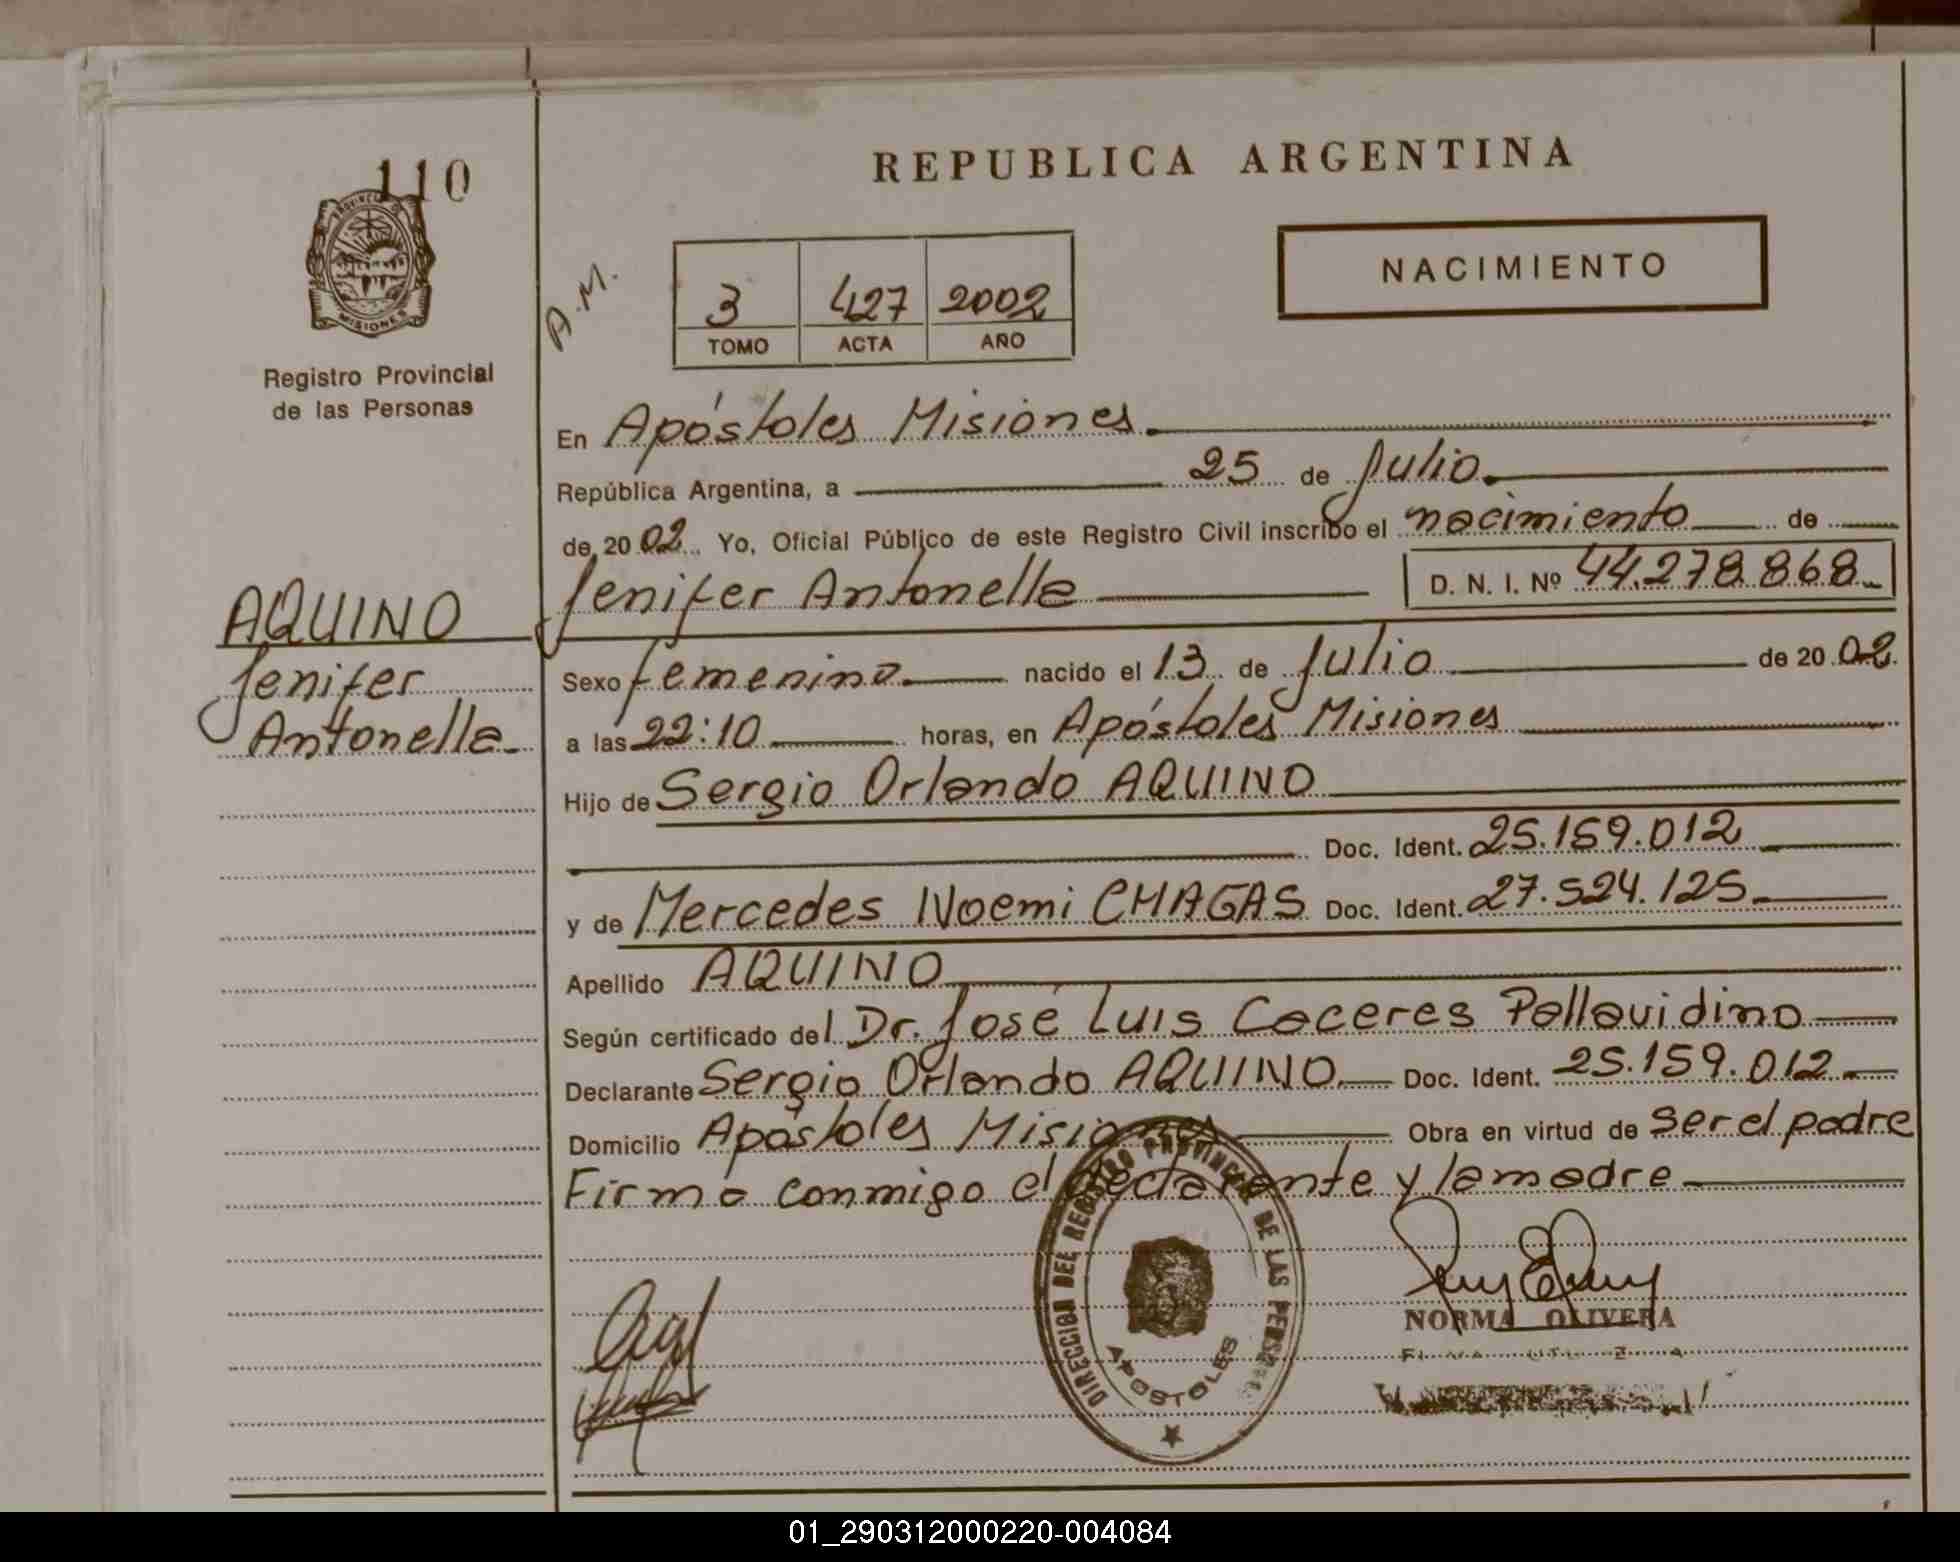 110
PROVINCIA DE
MISIONES
Registro Provincial
de las Personas
AQUINO
Jenifer
Antonella
REPUBLICA ARGENTINA
A.M.
3 427 2002
TOMO ACTA AÑO
NACIMIENTO
En Apóstoles Misiones
República Argentina, a 25 de Julio
de 2002 Yo, Oficial Público de este Registro Civil inscribo el nacimiento de
Jenifer Antonella D. N. I. Nº 44.278.868
Sexo femenino nacido el 13 de Julio de 2002
a las 22:10 horas, en Apóstoles Misiones
Hijo de Sergio Orlando AQUINO
Doc. Ident. 25.159.012
y de Mercedes Noemi CHAGAS Doc. Ident. 27.524.125
Apellido AQUINO
Según certificado del Dr. José Luis Caceres Pallavidino
Declarante Sergio Orlando AQUINO Doc. Ident. 25.159.012
Domicilio Apóstoles Misiones Obra en virtud de ser el padre
Firma conmigo el declarante y la madre
DIRECCION DEL REGISTRO PROVINCIAL DE LAS PERSONAS
APOSTOLES
NORMA OLIVERA
01_290312000220-004084